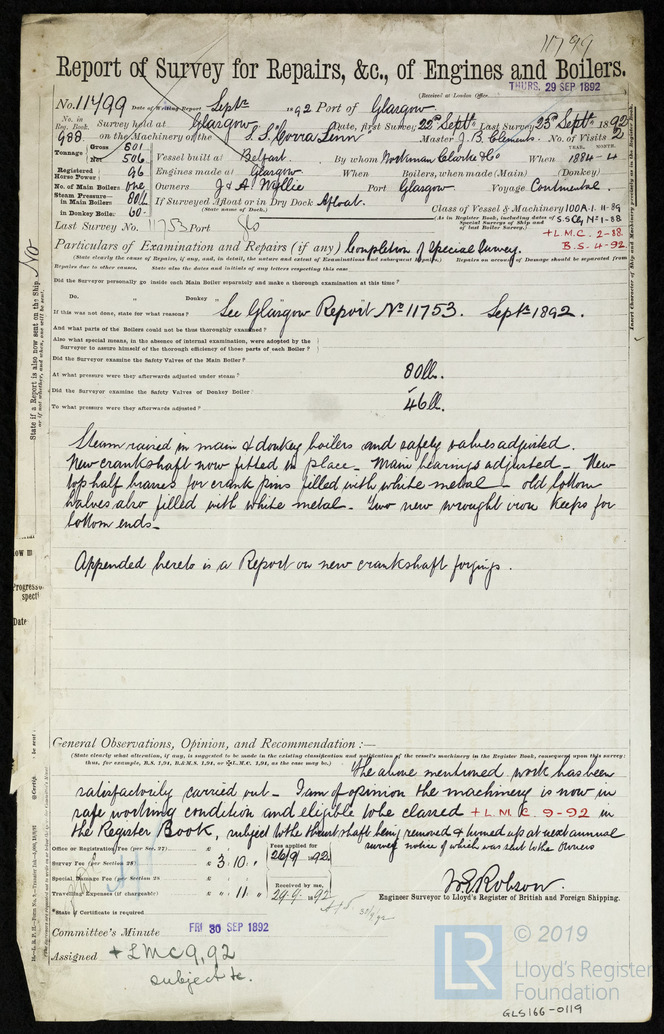 11799
Report of Survey for Repairs, &c., of Engines and Boilers.
(Received at London Office.
THURS. 29 SEP 1892
No. 11499 Date of Writing Report Septr 1892 Port of Glasgow.
No. in Reg. Book. Survey held at Glasgow Date, first Survey 22nd Septr Last Survey 25th Septr 1892
988 on the Machinery of the S.S. "Corra Linn" Master J. B. Clements. No. of Visits 2
Tonnage Gross 801 Net 506 Vessel built at Belfast. By whom Workman Clarke & Co When YEAR. MONTH. 1884-4
Registered Horse Power 96 Engines made at Glasgow When Boilers, when made (Main) (Donkey)
No. of Main Boilers one Owners J & A Wyllie Port Glasgow Voyage Continental.
Steam Pressure— in Main Boilers 80 lb If Surveyed Afloat or in Dry Dock Afloat.
(State name of Dock.)
in Donkey Boiler 60
Class of Vessel & Machinery 100A.1.11-89
(As in Register Book, including dates of Special Surveys of Ship and of last Boiler Survey.) S.S. Cly No 1-88
+L.M.C. 2-88
B.S. 4-92.
Last Survey No. 11753 Port Gls
Particulars of Examination and Repairs (if any) Completion of Special Survey.
(State clearly the cause of Repairs, if any, and, in detail, the nature and extent of Examinations and subsequent Repairs. Repairs on account of Damage should be separated from
Repairs due to other causes. State also the dates and initials of any letters respecting this case
Did the Surveyor personally go inside each Main Boiler separately and make a thorough examination at this time?
Do. " Donkey " "
If this was not done, state for what reasons? See Glasgow Report No 11753. Septr 1892.
And what parts of the Boilers could not be thus thoroughly examined?
Also what special means, in the absence of internal examination, were adopted by the
Surveyor to assure himself of the thorough efficiency of those parts of each Boiler?
Did the Surveyor examine the Safety Valves of the Main Boiler?
At what pressure were they afterwards adjusted under steam? 80 lb.
Did the Surveyor examine the Safety Valves of Donkey Boiler?
To what pressure were they afterwards adjusted? 46 lb.
Steam raised in main & donkey boilers and safety valves adjusted.
New crankshaft now fitted in place - Main bearings adjusted - New
top half brasses for crank pins filled with white metal - old bottom
halves also filled with white metal - Two new wrought iron keeps for
bottom ends -
Appended hereto is a Report on new crankshaft forgings.
General Observations, Opinion, and Recommendation :—
(State clearly what alteration, if any, is suggested to be made in the existing classification and notification of the vessel's machinery in the Register Book, consequent upon this survey:
thus, for example, B.S. 1,91, B&M.S. 1,91, or L.M.C. 1,91, as the case may be.)
The above mentioned work has been
satisfactorily carried out - I am of opinion the machinery is now in
safe working condition and eligible to be classed +L.M.C. 9-92 in
the Register Book, subject to the thrust shaft being removed & turned up at next annual
survey notice of which was sent to the Owners
Office or Registration Fee (per Sec. 27) £ : :
Survey Fee (per Section 28) £ 3. 10. "
Special Damage Fee (per Section 28) £ : :
Travelling Expenses (if chargeable) £ " 11. "
Fees applied for 26/9 1892
Received by me, 29.9. 1892
30/9/92
*State if Certificate is required
W E Robson.
Engineer Surveyor to Lloyd's Register of British and Foreign Shipping.
Committee's Minute FRI 30 SEP 1892
Assigned +LMC 9,92
subject to.
State if a Report is also now sent on the Ship No
or if not, whether, and when, one will be sent.
Insert Character of Ship and Machinery precisely as in the Register Book.
Progress
spect
Date
LR
© 2019
Lloyd's Register
Foundation
GLS166-0119